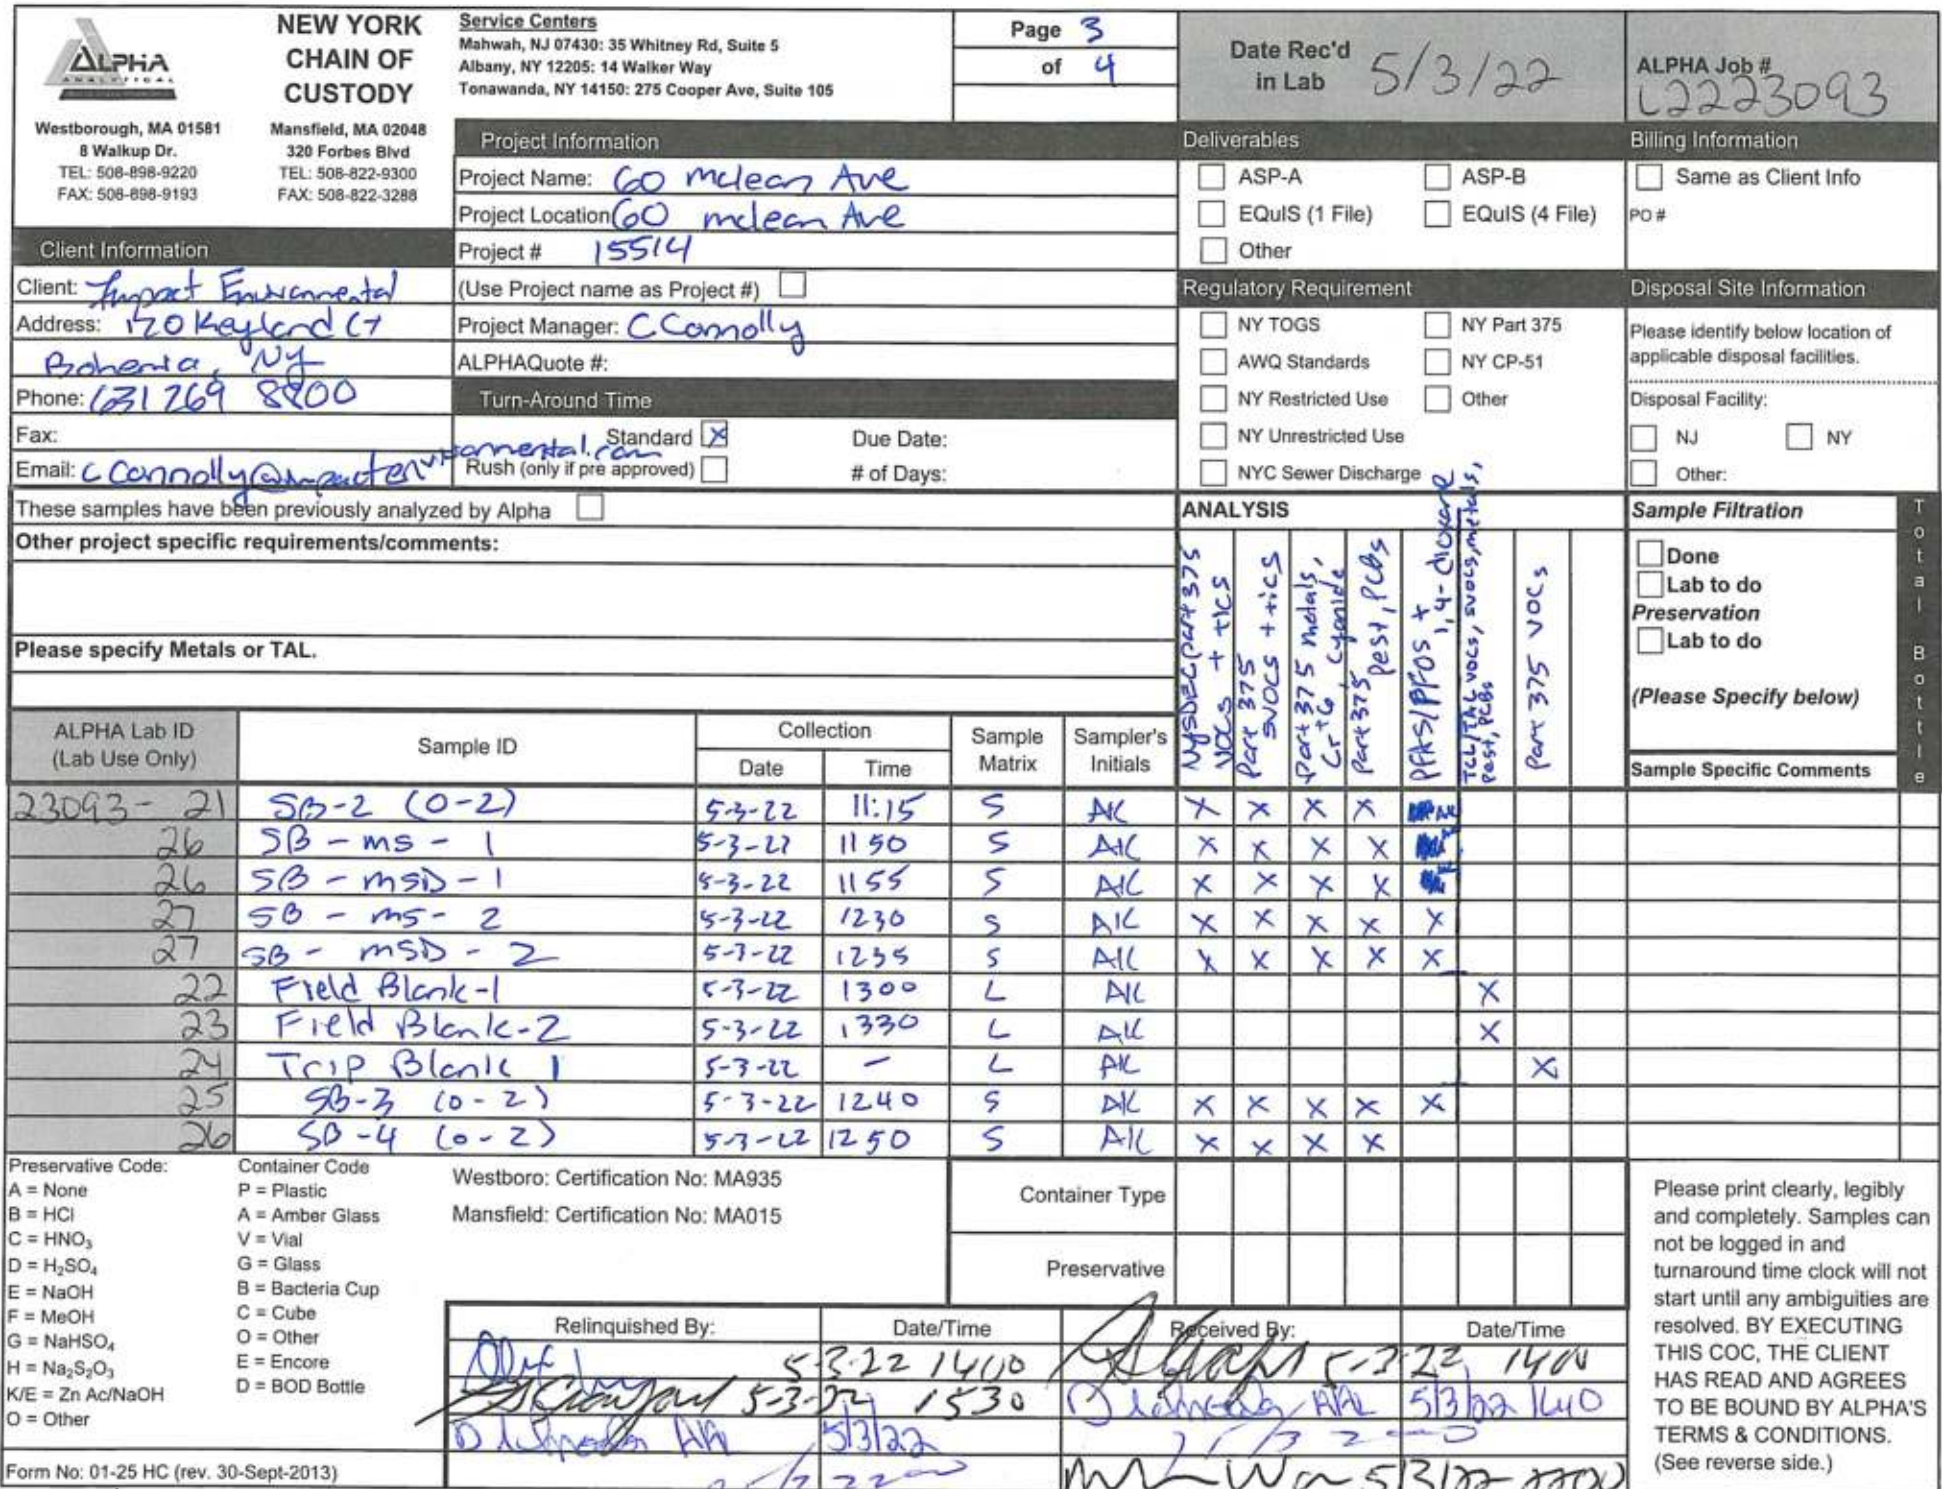 ALPHA
ANALYTICAL
NEW YORK
CHAIN OF
CUSTODY
Westborough, MA 01581
8 Walkup Dr.
TEL: 508-898-9220
FAX: 508-898-9193
Mansfield, MA 02048
320 Forbes Blvd
TEL: 508-822-9300
FAX: 508-822-3288
Service Centers
Mahwah, NJ 07430: 35 Whitney Rd, Suite 5
Albany, NY 12205: 14 Walker Way
Tonawanda, NY 14150: 275 Cooper Ave, Suite 105
Page 3
of 4
Date Rec'd
in Lab 5/3/22
ALPHA Job #
L2223093
Project Information
Project Name: 60 mclean Ave
Project Location 60 mclean Ave
Project # 15514
(Use Project name as Project #)
Project Manager: C Connolly
ALPHAQuote #:
Client Information
Client: Impact Environmental
Address: 170 Keyland Ct
Bohemia, NY
Phone: 631 269 8800
Fax:
Email: CConnolly@impactenvironmental.com
Turn-Around Time
Standard X
Due Date:
Rush (only if pre approved)
# of Days:
Deliverables
ASP-A ASP-B
EQuIS (1 File) EQuIS (4 File)
Other
Billing Information
Same as Client Info
PO #
Regulatory Requirement
NY TOGS NY Part 375
AWQ Standards NY CP-51
NY Restricted Use Other
NY Unrestricted Use
NYC Sewer Discharge
Disposal Site Information
Please identify below location of
applicable disposal facilities.
Disposal Facility:
NJ NY
Other:
These samples have been previously analyzed by Alpha
Other project specific requirements/comments:
Please specify Metals or TAL.
ANALYSIS
NYSDEC part 375
VOCs + tics
Part 375
SVOCs + tics
Part 375 metals,
Cr+6, cyanide
Part 375
Pest, PCBs
PFAS/PFOS +
1,4-dioxane
TCL/TAL VOCs, SVOCs, metals,
Pest, PCBs
Part 375 VOCs
Sample Filtration
Done
Lab to do
Preservation
Lab to do
(Please Specify below)
Sample Specific Comments
Total Bottle
ALPHA Lab ID
(Lab Use Only)
Sample ID
Collection
Date Time
Sample
Matrix
Sampler's
Initials
23093-21 SB-2 (0-2) 5-3-22 11:15 S AK X X X X
26 SB-ms-1 5-3-22 1150 S AK X X X X
26 SB-msD-1 5-3-22 1155 S AK X X X X
27 SB-ms-2 5-3-22 1230 S AK X X X X X
27 SB-msD-2 5-3-22 1235 S AK X X X X X
22 Field Blank-1 5-3-22 1300 L AK X
23 Field Blank-2 5-3-22 1330 L AK X
24 Trip Blank 1 5-3-22 - L AK X
25 SB-3 (0-2) 5-3-22 1240 S AK X X X X X
26 SB-4 (0-2) 5-3-22 1250 S AK X X X X
Preservative Code:
A = None
B = HCl
C = HNO₃
D = H₂SO₄
E = NaOH
F = MeOH
G = NaHSO₄
H = Na₂S₂O₃
K/E = Zn Ac/NaOH
O = Other
Container Code
P = Plastic
A = Amber Glass
V = Vial
G = Glass
B = Bacteria Cup
C = Cube
O = Other
E = Encore
D = BOD Bottle
Westboro: Certification No: MA935
Mansfield: Certification No: MA015
Container Type
Preservative
Relinquished By: Date/Time Received By: Date/Time
5-3-22 1400 5-3-22 1400
5-3-22 1530 AAL 5/3/22 1640
5/3/22
5/3/22 2200
Please print clearly, legibly
and completely. Samples can
not be logged in and
turnaround time clock will not
start until any ambiguities are
resolved. BY EXECUTING
THIS COC, THE CLIENT
HAS READ AND AGREES
TO BE BOUND BY ALPHA'S
TERMS & CONDITIONS.
(See reverse side.)
Form No: 01-25 HC (rev. 30-Sept-2013)